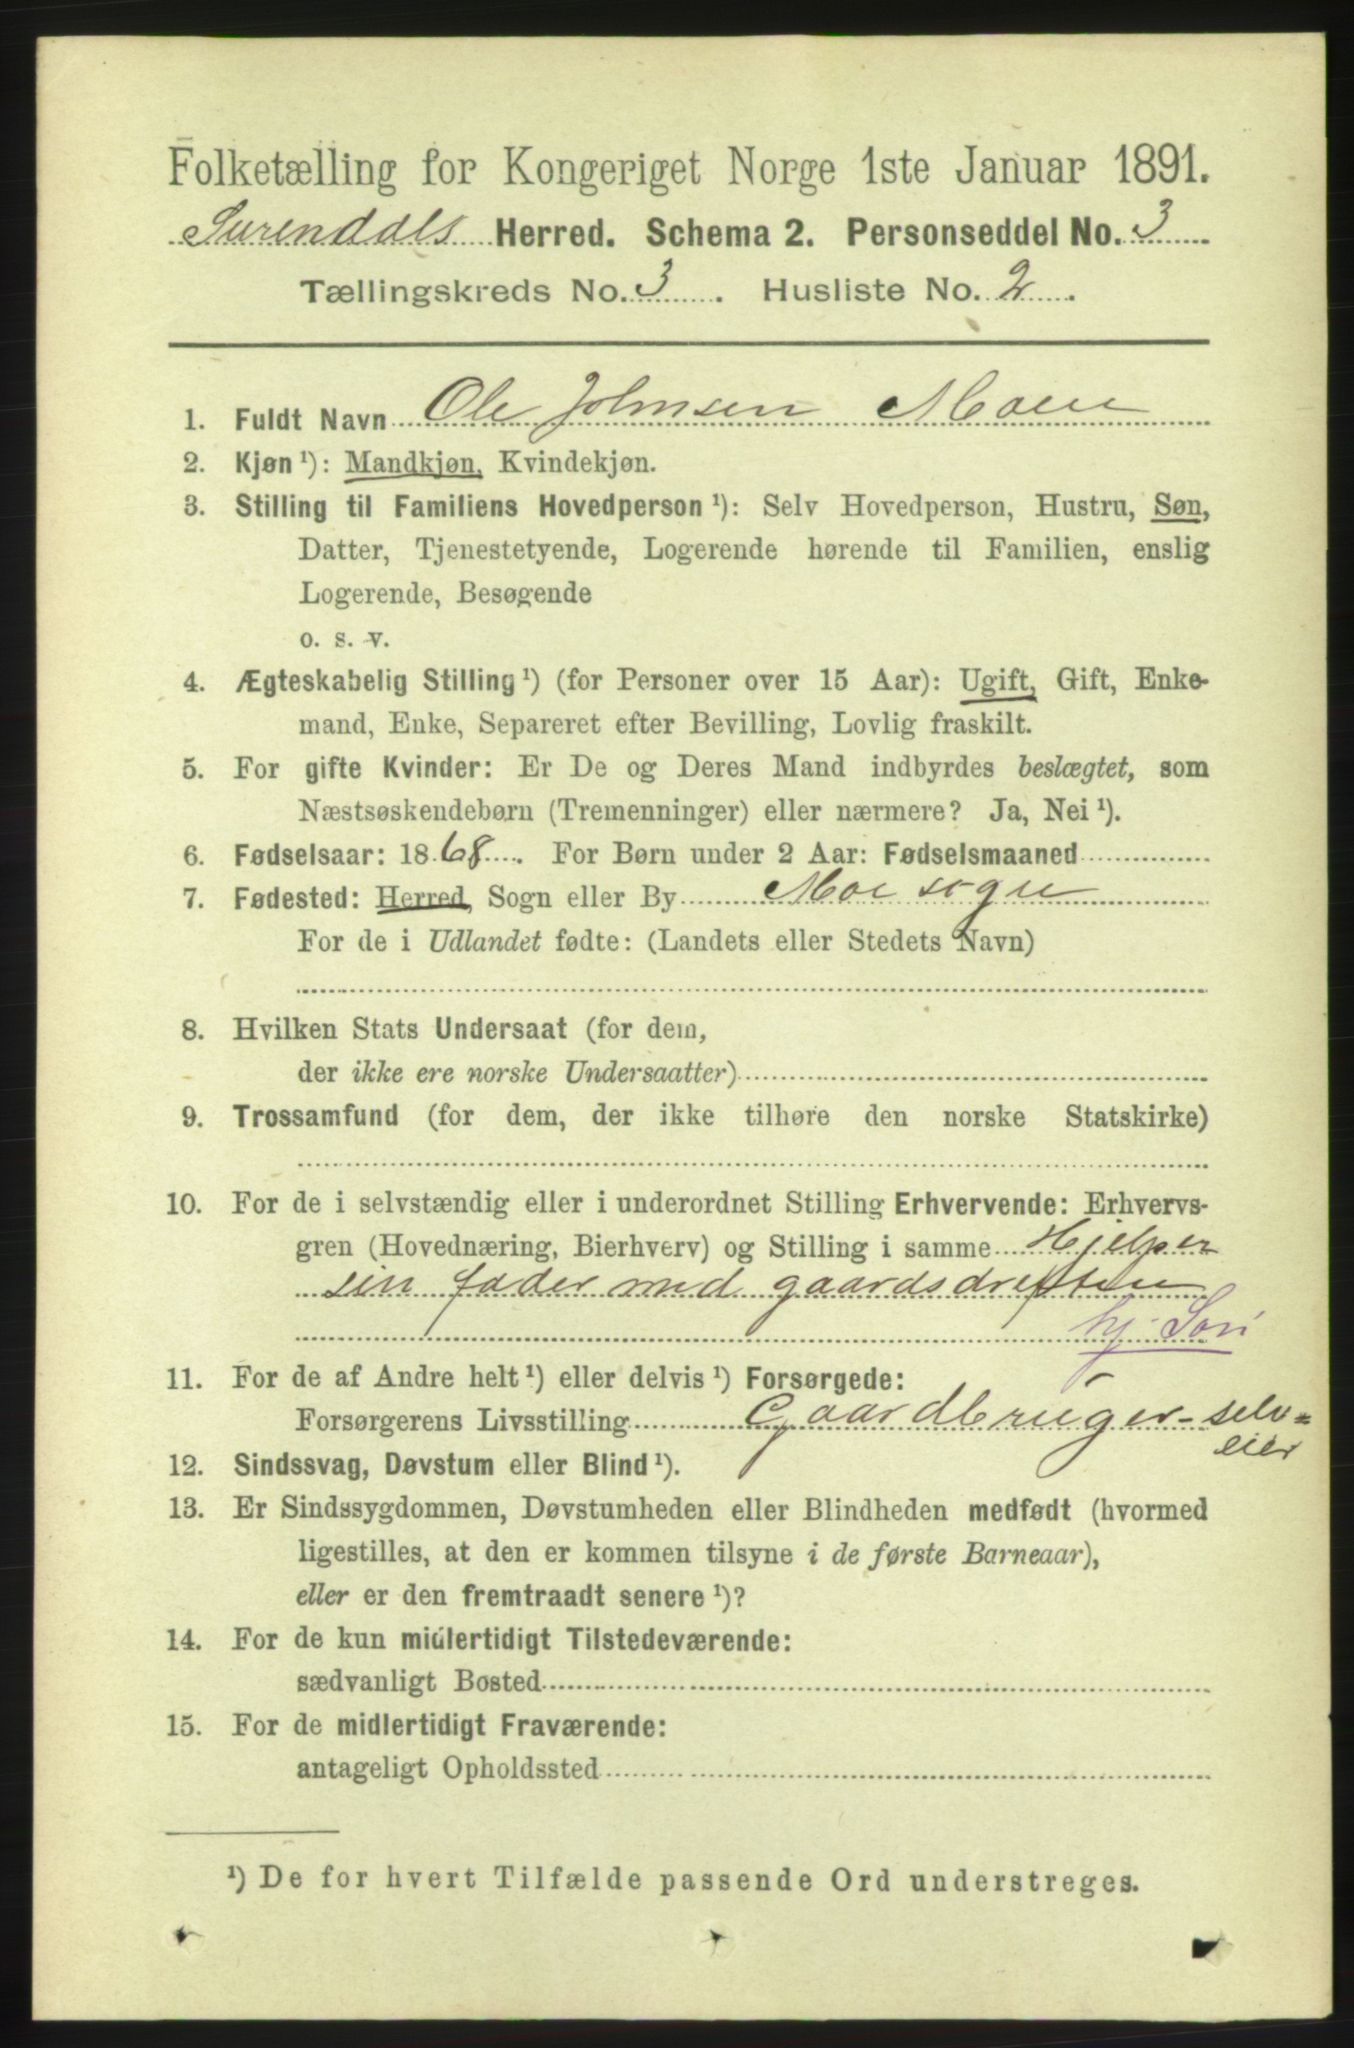 Folketælling for Kongeriget Norge 1ste Januar 1891.
Surendals Herred. Schema 2. Personseddel No. 3
Tællingskreds No. 3. Husliste No. 2.
1. Fuldt Navn Ole Johnsen Moen
2. Kjøn ¹): Mandkjøn, Kvindekjøn.
3. Stilling til Familiens Hovedperson ¹): Selv Hovedperson, Hustru, Søn,
Datter, Tjenestetyende, Logerende hørende til Familien, enslig
Logerende, Besøgende
o. s. v.
4. Ægteskabelig Stilling ¹) (for Personer over 15 Aar): Ugift, Gift, Enke-
mand, Enke, Separeret efter Bevilling, Lovlig fraskilt.
5. For gifte Kvinder: Er De og Deres Mand indbyrdes beslægtet, som
Næstsøskendebørn (Tremenninger) eller nærmere? Ja, Nei ¹).
6. Fødselsaar: 1868. For Børn under 2 Aar: Fødselsmaaned
7. Fødested: Herred, Sogn eller By Moe sogn
For de i Udlandet fødte: (Landets eller Stedets Navn)
8. Hvilken Stats Undersaat (for dem,
der ikke ere norske Undersaatter)
9. Trossamfund (for dem, der ikke tilhøre den norske Statskirke)
10. For de i selvstændig eller i underordnet Stilling Erhvervende: Erhvervs-
gren (Hovednæring, Bierhverv) og Stilling i samme Hjelper
sin fader med gaardsdriften
hj. Søn
11. For de af Andre helt ¹) eller delvis ¹) Forsørgede:
Forsørgerens Livsstilling Gaardbruger - selv=
eier
12. Sindssvag, Døvstum eller Blind ¹).
13. Er Sindssygdommen, Døvstumheden eller Blindheden medfødt (hvormed
ligestilles, at den er kommen tilsyne i de første Barneaar),
eller er den fremtraadt senere ¹)?
14. For de kun midlertidigt Tilstedeværende:
sædvanligt Bosted
15. For de midlertidigt Fraværende:
antageligt Opholdssted
¹) De for hvert Tilfælde passende Ord understreges.